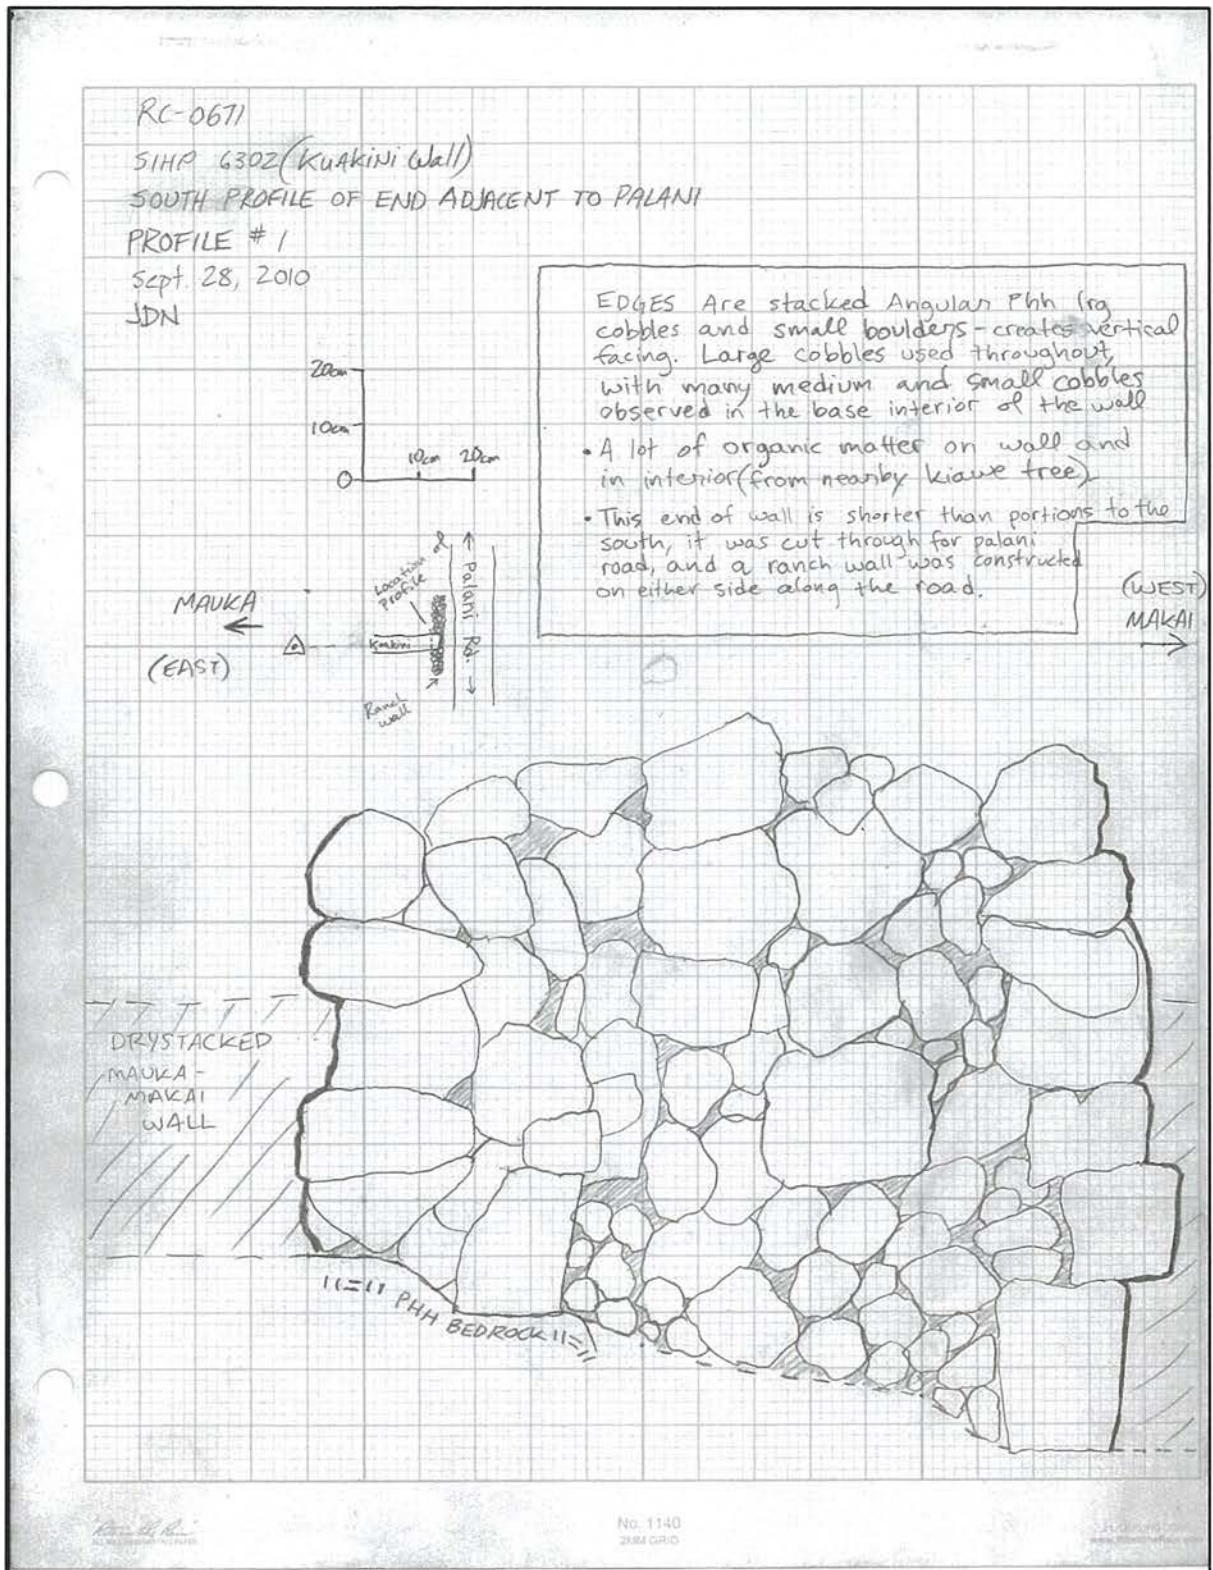 RC-0671
SIHP 6302 (KUAKINI Wall)
SOUTH PROFILE OF END ADJACENT TO PALANI
PROFILE # 1
Sept. 28, 2010
JDN
EDGES Are stacked Angular Phh lrg
cobbles and small boulders - creates vertical
facing. Large cobbles used throughout,
with many medium and small cobbles
observed in the base interior of the wall
• A lot of organic matter on wall and
in interior (from nearby kiawe tree)
• This end of wall is shorter than portions to the
south, it was cut through for palani
road, and a ranch wall was constructed
on either side along the road.
20cm
10cm
0
10cm 20cm
Location of
Profile
Palani Rd.
Kuakini
Ranch
wall
MAUKA
(EAST)
(WEST)
MAKAI
DRYSTACKED
MAUKA-
MAKAI
WALL
PHH BEDROCK
No. 1140
2MM GRID